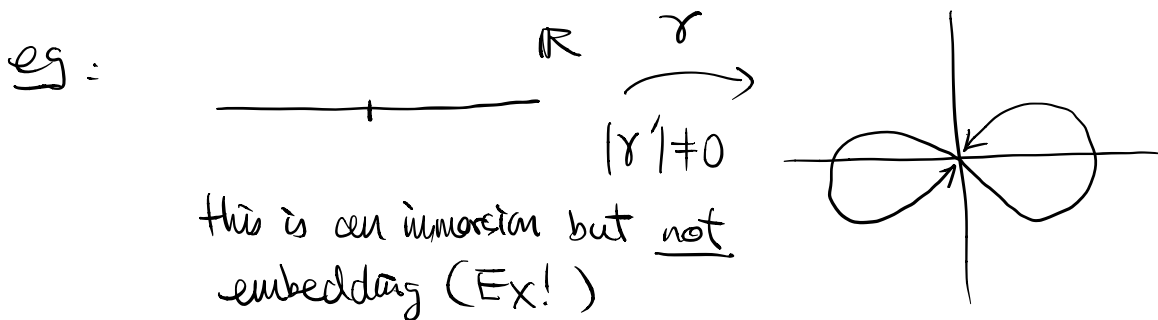 eg :
ℝ γ
|γ'| ≠ 0
this is an immersion but not
embedding (Ex!)